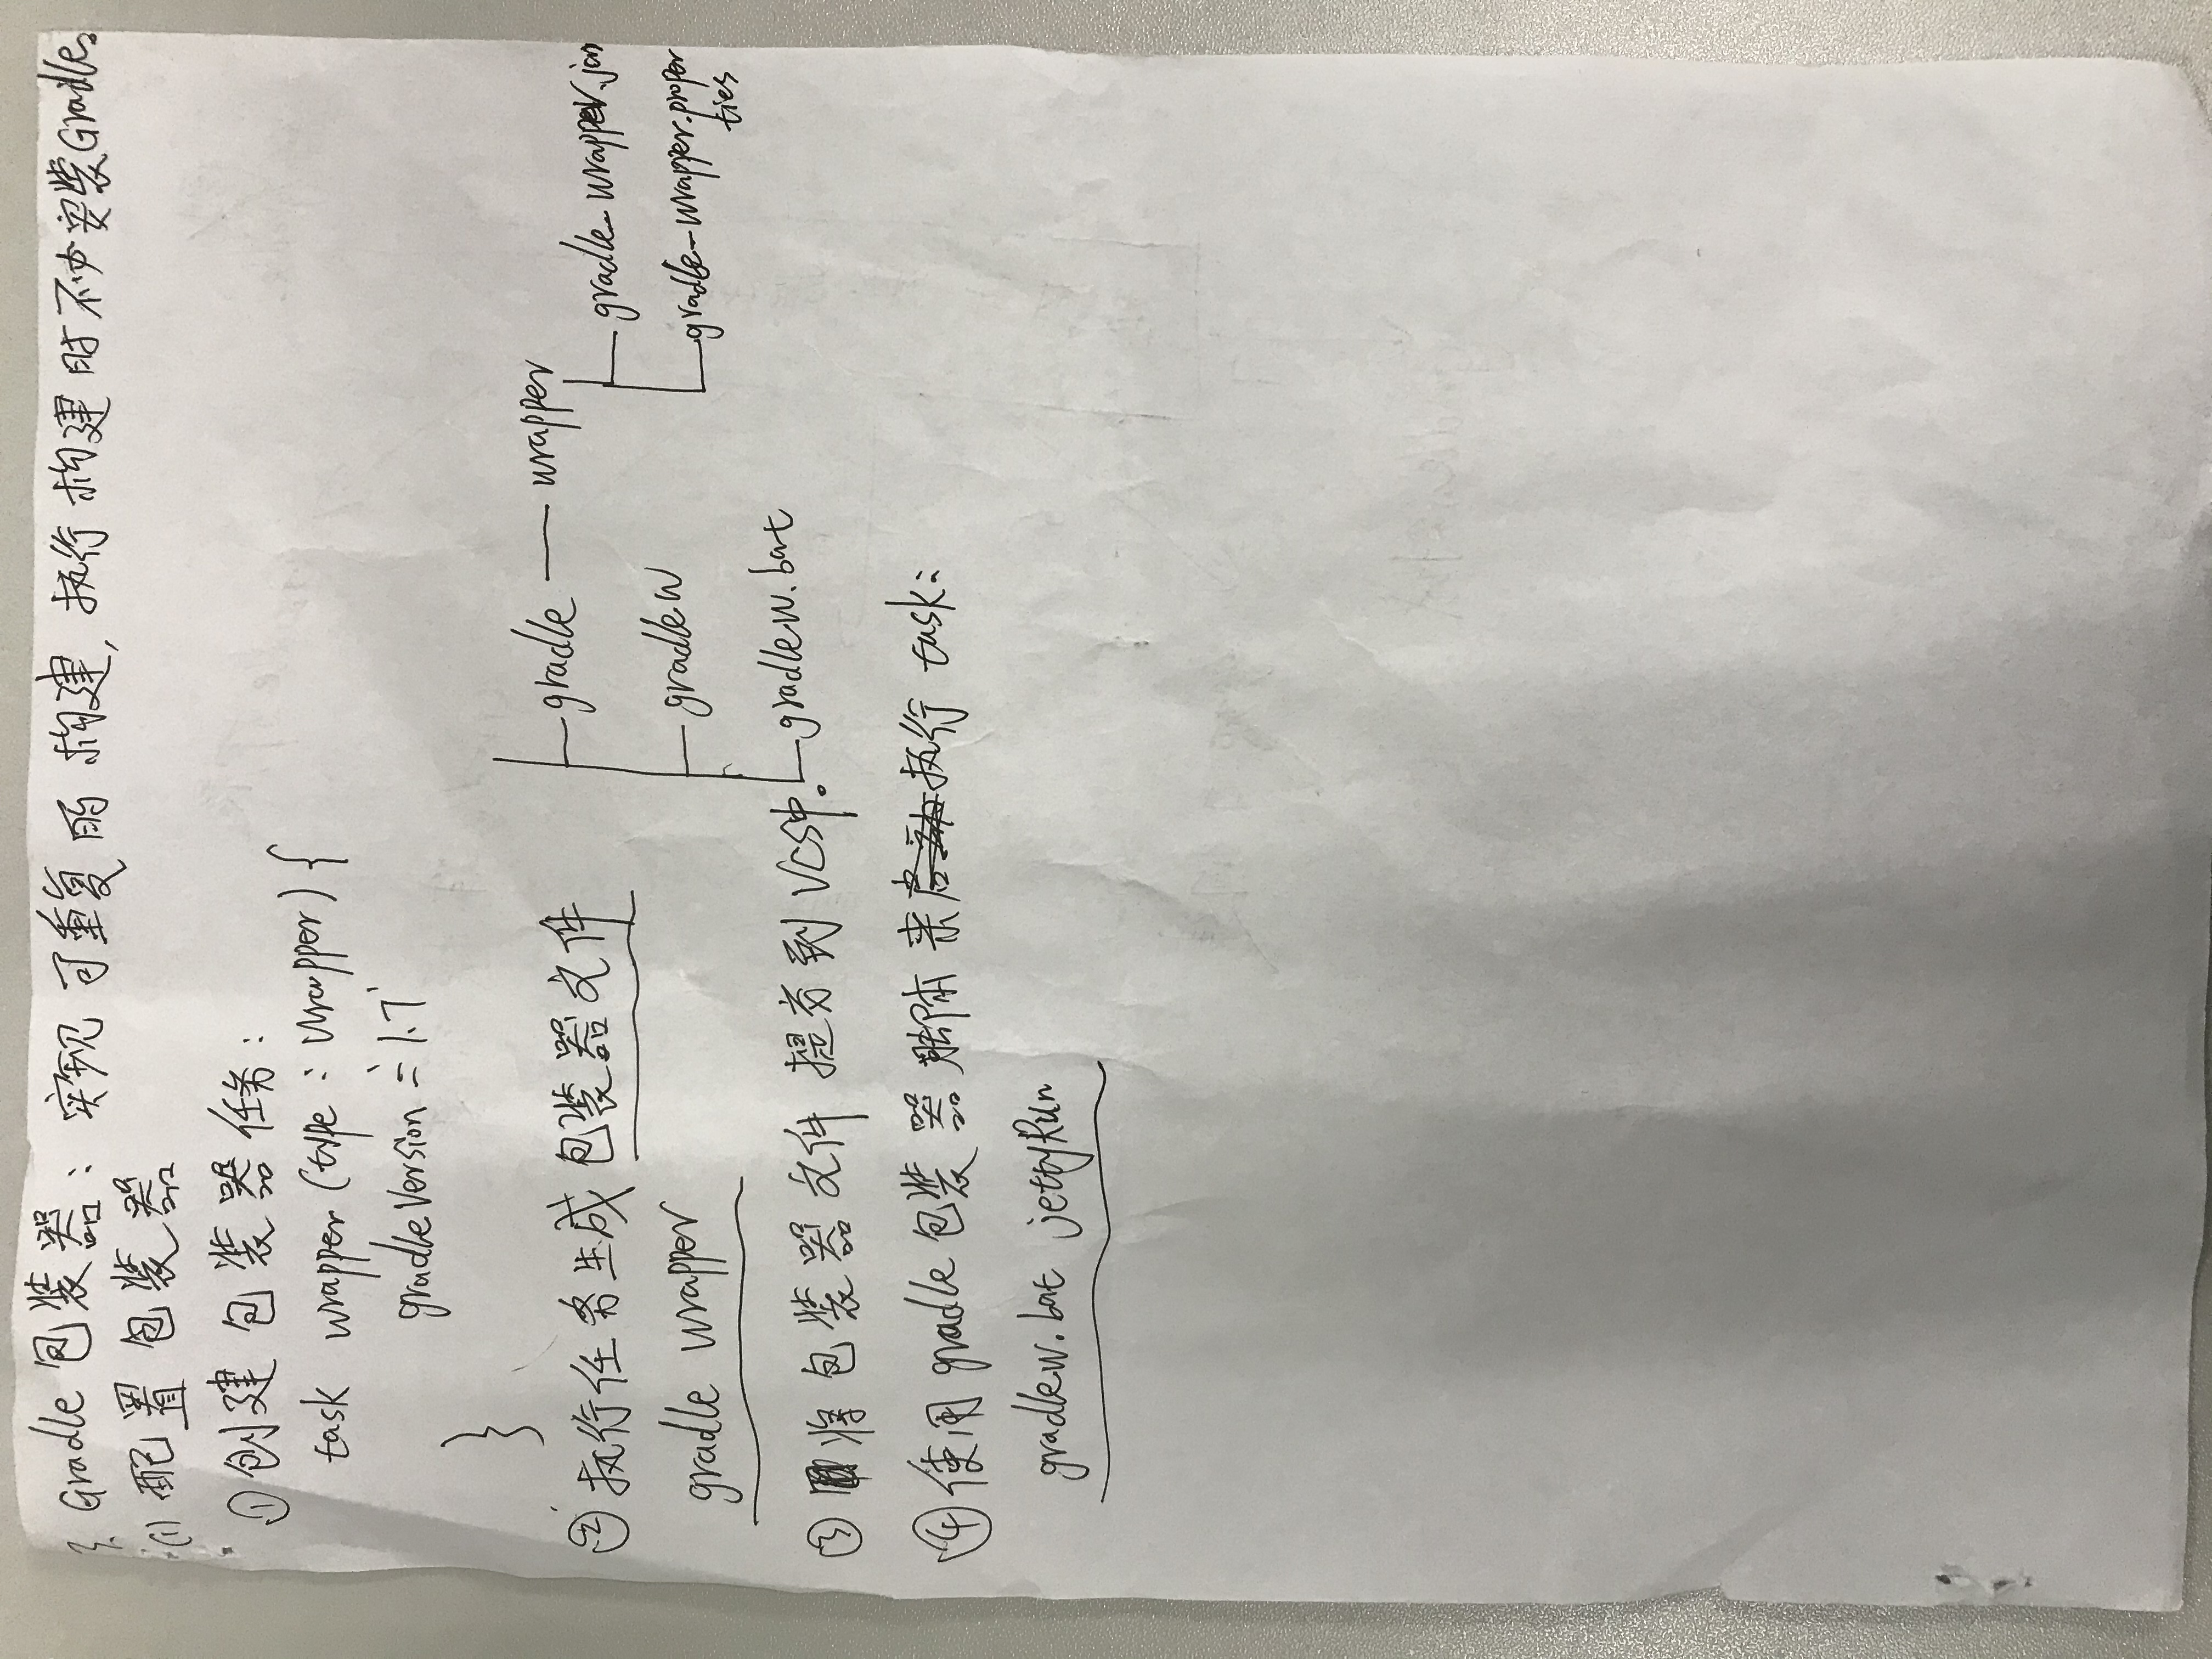 3. Gradle包装器：实现可重复的构建，执行构建时不必安装Gradle。
(1) 配置包装器
①创建包装器任务：
task wrapper(type：Wrapper){
gradleVersion = '1.7'
}
②执行任务生成包装器文件
gradle wrapper
gradle — wrapper
gradle-wrapper.jar
gradle-wrapper.proper
ties
gradlew
gradlew.bat
③将包装器文件提交到VCS中。
④使用gradle包装器脚本来执行task：
gradlew.bat jettyRun